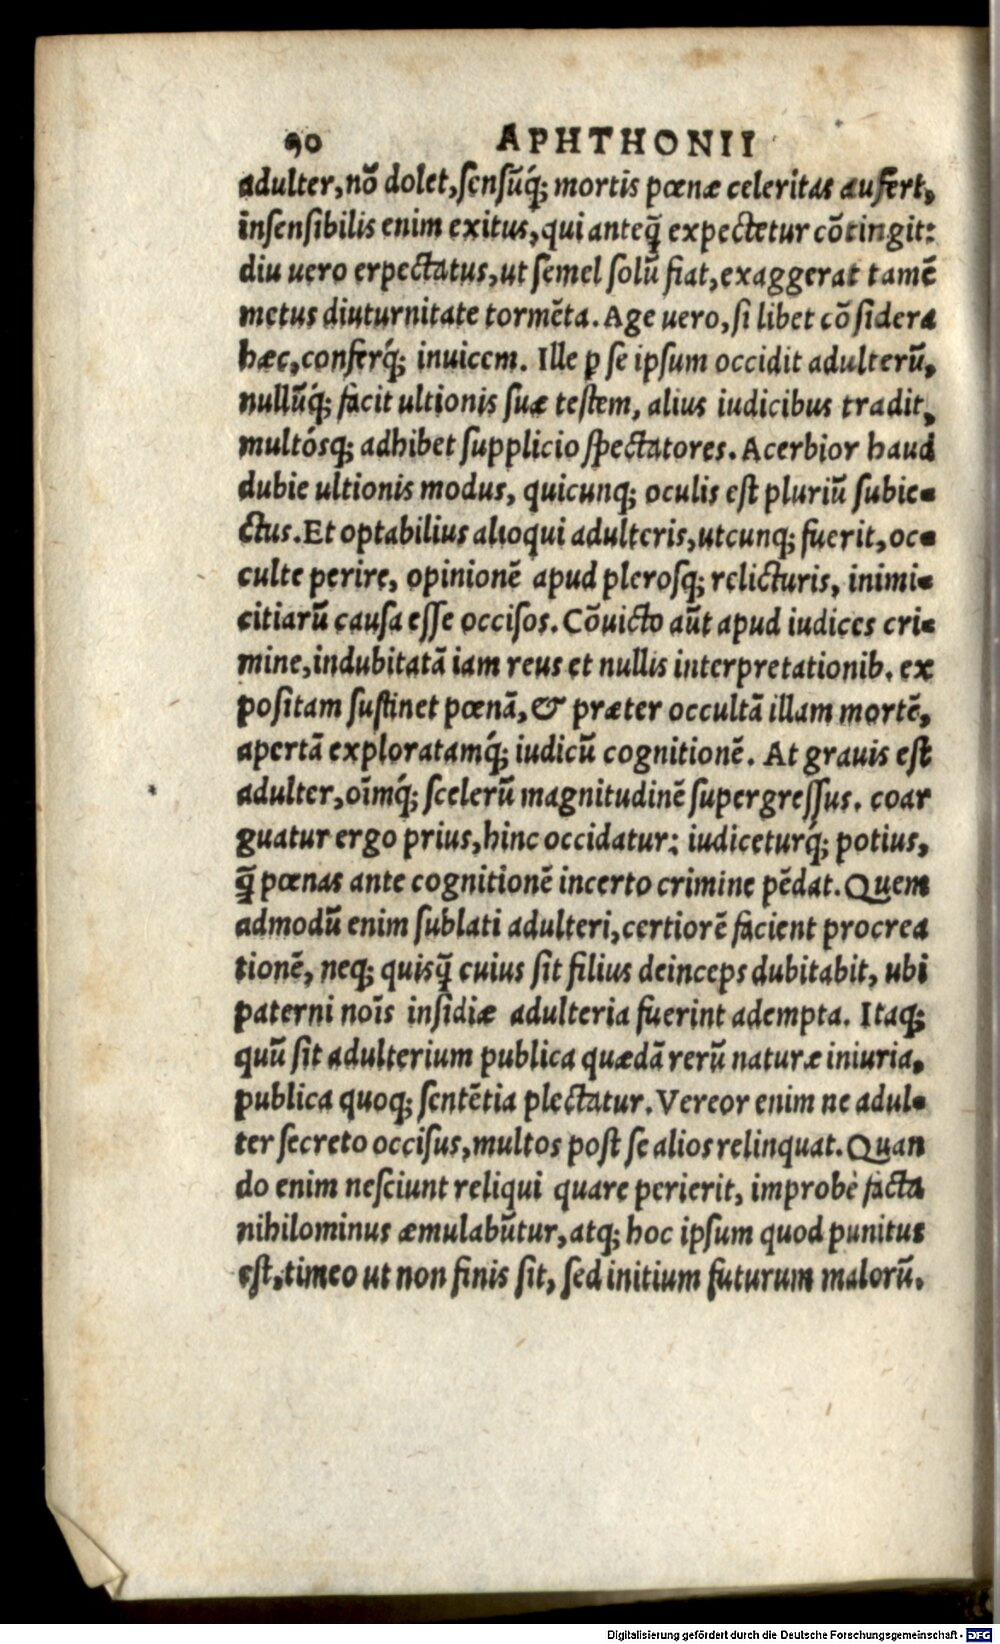 90 APHTHONII
adulter, nõ dolet, sensũq́; mortis pœnæ celeritas aufert,
insensibilis enim exitus, qui anteq̃ expectetur cõtingit:
diu uero erpectatus, ut semel solũ fiat, exaggerat tamẽ
metus diuturnitate tormẽta. Age uero, si libet cõsidera
hæc, conferq́; inuicem. Ille p se ipsum occidit adulterũ,
nullũq́; facit ultionis suæ testem, alius iudicibus tradit,
multósq; adhibet supplicio spectatores. Acerbior haud
dubie ultionis modus, quicunq; oculis est pluriũ subie-
ctus. Et optabilius alioqui adulteris, utcunq; fuerit, oc-
culte perire, opinionẽ apud plerosq; relicturis, inimi-
citiarũ causa esse occisos. Cõuicto aũt apud iudices cri-
mine, indubitatã iam reus et nullis interpretationib. ex
positam sustinet pœnã, & præter occultã illam mortẽ,
apertã exploratamq́; iudicũ cognitionẽ. At grauis est
adulter, oĩmq́; scelerũ magnitudinẽ supergressus. coar
guatur ergo prius, hinc occidatur: iudiceturq́; potius,
q̃ pœnas ante cognitionẽ incerto crimine pẽdat. Quem
admodũ enim sublati adulteri, certiorẽ facient procrea
tionẽ, neq; quisq̃ cuius sit filius deinceps dubitabit, ubi
paterni noĩs insidiæ adulteria fuerint adempta. Itaq;
quũ sit adulterium publica quædã rerũ naturæ iniuria,
publica quoq; sentẽtia plectatur. Vereor enim ne adul-
ter secreto occisus, multos post se alios relinquat. Quan
do enim nesciunt reliqui quare perierit, improbè facta
nihilominus æmulabũtur, atq; hoc ipsum quod punitus
est, timeo ut non finis sit, sed initium futurum malorũ.
Digitalisierung gefördert durch die Deutsche Forschungsgemeinschaft - DFG